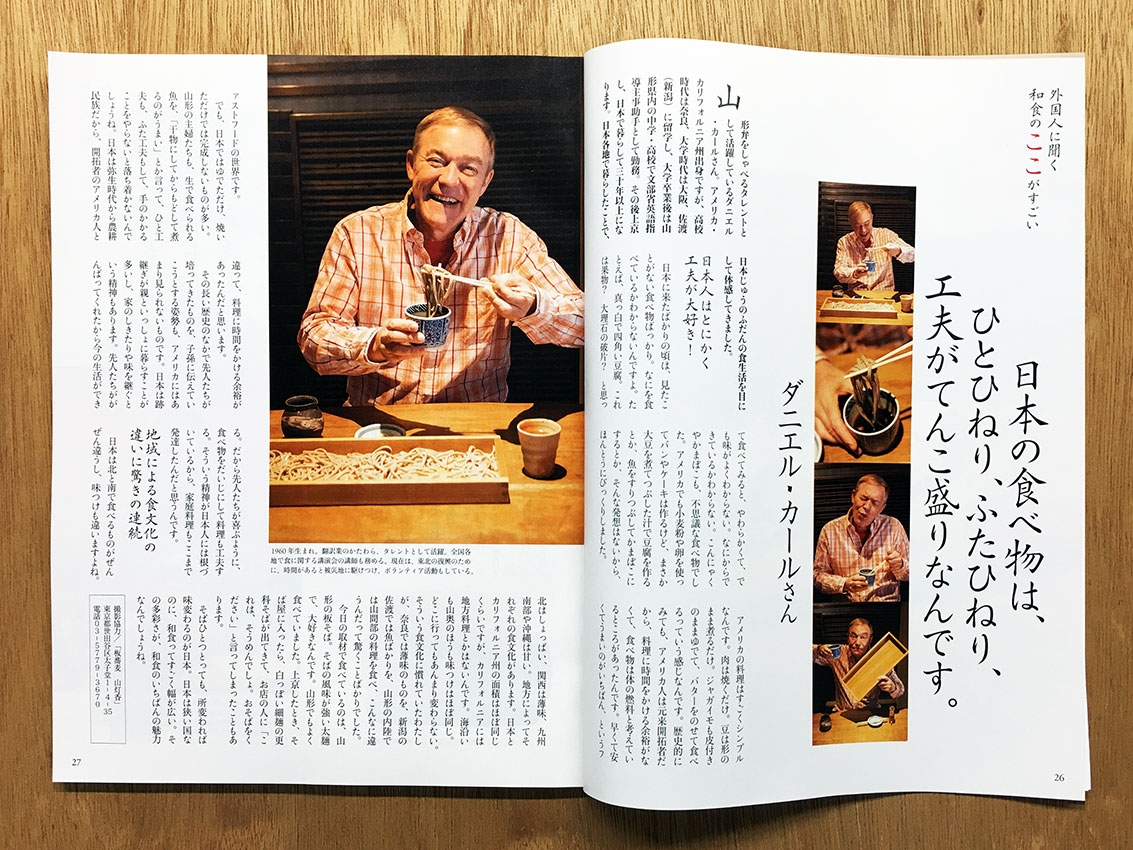 外国人に聞く
和食のここがすごい
日本の食べ物は、
ひとひねり、ふたひねり、
工夫がてんこ盛りなんです。
ダニエル・カールさん
山形弁をしゃべるタレントと
して活躍しているダニエル
・カールさん。アメリカ・
カリフォルニア州出身ですが、高校
時代は奈良、大学時代は大阪、佐渡
(新潟)に留学し、大学卒業後は山
形県内の中学・高校で文部省英語指
導主事助手として勤務。その後上京
し、日本で暮らして三十年以上にな
ります。日本各地で暮らしたことで、
日本じゅうのふだんの食生活を目に
して体感してきました。
日本人はとにかく
工夫が大好き!
日本に来たばかりの頃は、見たこ
とがない食べ物ばっかり。なにを食
べているかわからないんですよ。た
とえば、真っ白で四角い豆腐。これ
は果物? 大理石の破片? と思っ
て食べてみると、やわらかくて、で
も味がよくわからない。なにからで
きているかわからない。こんにゃく
やかまぼこも、不思議な食べ物でし
た。アメリカでも小麦粉や卵を使っ
てパンやケーキは作るけど、まさか
大豆を煮てつぶした汁で豆腐を作る
とか、魚をすりつぶしてかまぼこに
するとか、そんな発想はないから、
ほんとうにびっくりしました。
アメリカの料理はすごくシンプル
なんです。肉は焼くだけ。豆は形の
まま煮るだけ。ジャガイモも皮付き
のままゆでて、バターをのせて食べ
るっていう感じなんです。歴史的に
みても、アメリカ人は元来開拓者だ
から、料理に時間をかける余裕がな
くて、食べ物は体の燃料と考えてい
るところがあったんです。早くて安
くてうまいのがいちばん、というフ
26
ァストフードの世界です。
でも、日本ではゆでただけ、焼い
ただけでは完成しないものが多い。
山形の主婦たちも、生で食べられる
魚を、「干物にしてからもどして煮
るのがうまい」とか言って、ひと工
夫も、ふた工夫もして、手のかかる
ことをやらないと落ち着かないんで
しょうね。日本は弥生時代から農耕
民族だから、開拓者のアメリカ人と
違って、料理に時間をかける余裕が
あったんだと思います。
その長い歴史のなかで先人たちが
培ってきたものを、子孫に伝えてい
こうとする姿勢も、アメリカにはあ
まり見られないものです。日本は跡
継ぎが親といっしょに暮らすことが
多いし、家のしきたりや味を継ぐと
いう精神もあります。先人たちがが
んばってくれたから今の生活ができ
る。だから先人たちが喜ぶように、
食べ物をだいじにして料理も工夫す
る。そういう精神が日本人には根づ
いているから、家庭料理もここまで
発達したんだと思うんです。
地域による食文化の
違いに驚きの連続
日本は北と南で食べるものがぜん
ぜん違うし、味つけも違いますよね。
北はしょっぱい、関西は薄味、九州
南部や沖縄は甘い。地方によってそ
れぞれの食文化があります。日本と
カリフォルニア州の面積はほぼ同じ
くらいですが、カリフォルニアには
地方料理とかはないんです。海沿い
も山奥のほうも味つけはほぼ同じ。
どこに行ってもあんまり変わらない。
そういう食文化に慣れていたわたし
が、奈良では薄味のものを、新潟の
佐渡では魚ばかりを、山形の内陸で
は山間部の料理を食べ、こんなに違
うんだって驚くことばかりでした。
今日の取材で食べているのは、山
形の板そば。そばの風味が強い太麺
で、大好きなんです。山形でもよく
食べていました。上京したとき、そ
ば屋に入ったら、白っぽい細麺の更
科そばが出てきて、お店の人に「こ
れは、そうめんでしょ。おそばをく
ださい」と言ってしまったこともあ
ります。
そばひとつとっても、所変われば
味変わるのが日本。日本は狭い国な
のに、和食ってすごく幅が広い。そ
の多彩さが、和食のいちばんの魅力
なんでしょうね。
1960年生まれ。翻訳業のかたわら、タレントとして活躍。全国各
地で食に関する講演会の講師も務める。現在は、東北の復興のため
に、時間があると被災地に駆けつけ、ボランティア活動もしている。
撮影協力/「板蕎麦 山灯香」
東京都世田谷区太子堂1-4-35
電話03-5779-3670
27